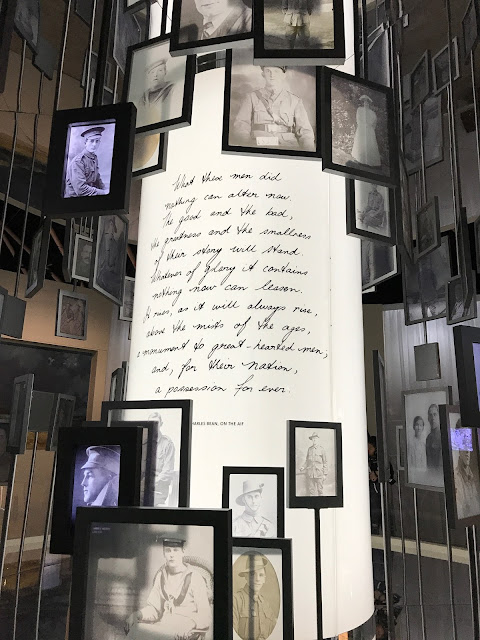 What these men did
nothing can alter now.
The good and the bad,
the greatness and the smallness
of their story will stand.
Whatever of glory it contains
nothing now can lessen.
It rises, as it will always rise,
above the mists of the ages,
a monument to great-hearted men;
and, for their nation,
a possession for ever.
HARLES BEAN, ON THE AIF